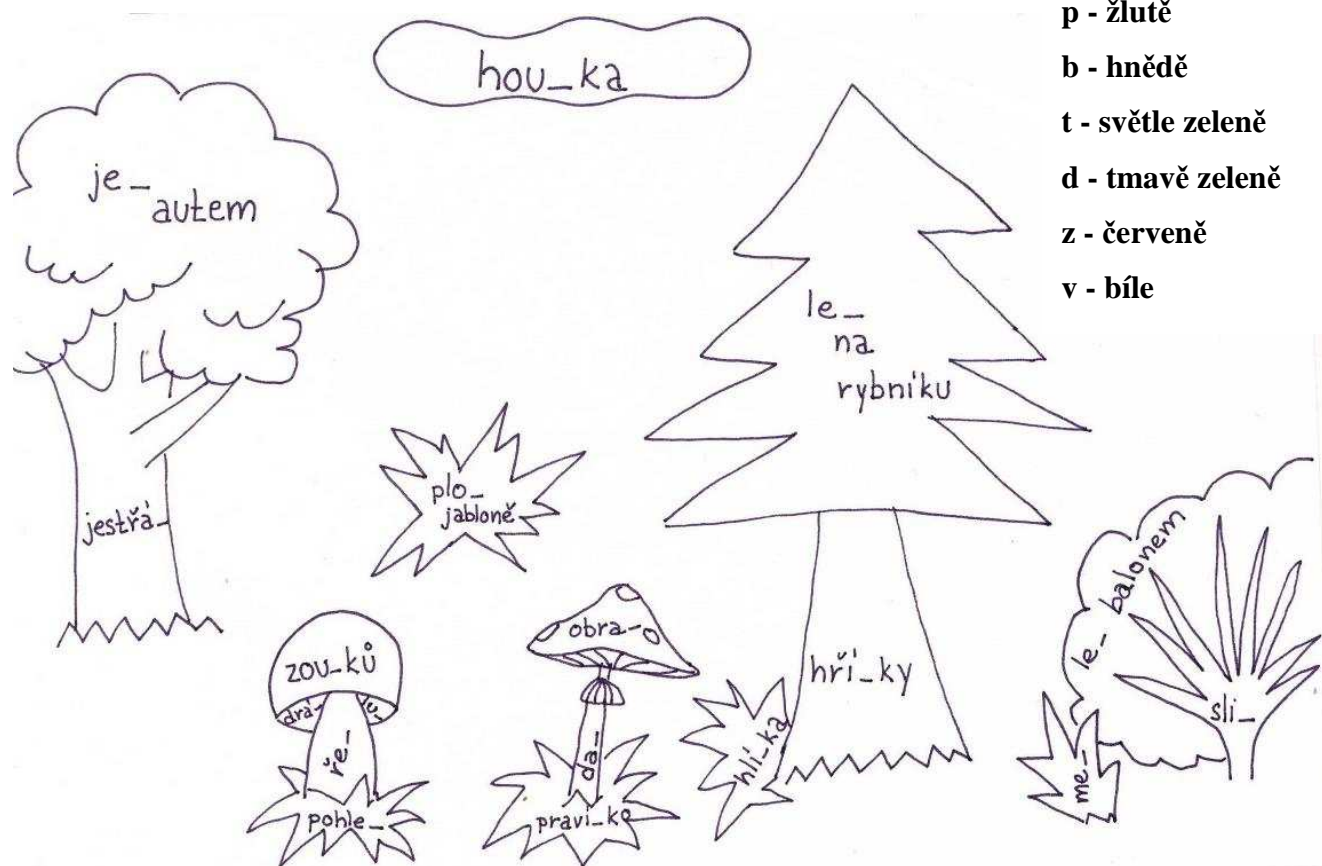 p - žlutě
b - hnědě
t - světle zeleně
d - tmavě zeleně
z - červeně
v - bíle
hou_ka
je_
autem
le_
na
rybníku
jestřá_
plo_
jabloně
le_ balonem
zou_ků
drá_
lu_
ře_
pohle_
obra_
da_
pravi_ko
hli_ka
hří_ky
sli_
me_